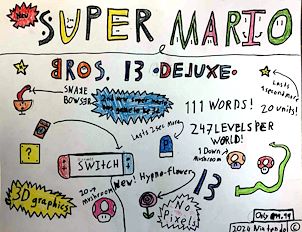 New
SUPER MARIO
BROS. 13 •DELUXE•
SNAKE
BOWSER
2nd new super mario
Lasts
1 second more
111 WORDS!
20 units!
Lasts 2 sec More
247 LEVELS PER
WORLD!
1 Down
Mushroom
?
SWITCH
New! Hypno-flower
13
3D
graphics!
Mushroom
No
Pixels!
Only
2024 Nintendo ©